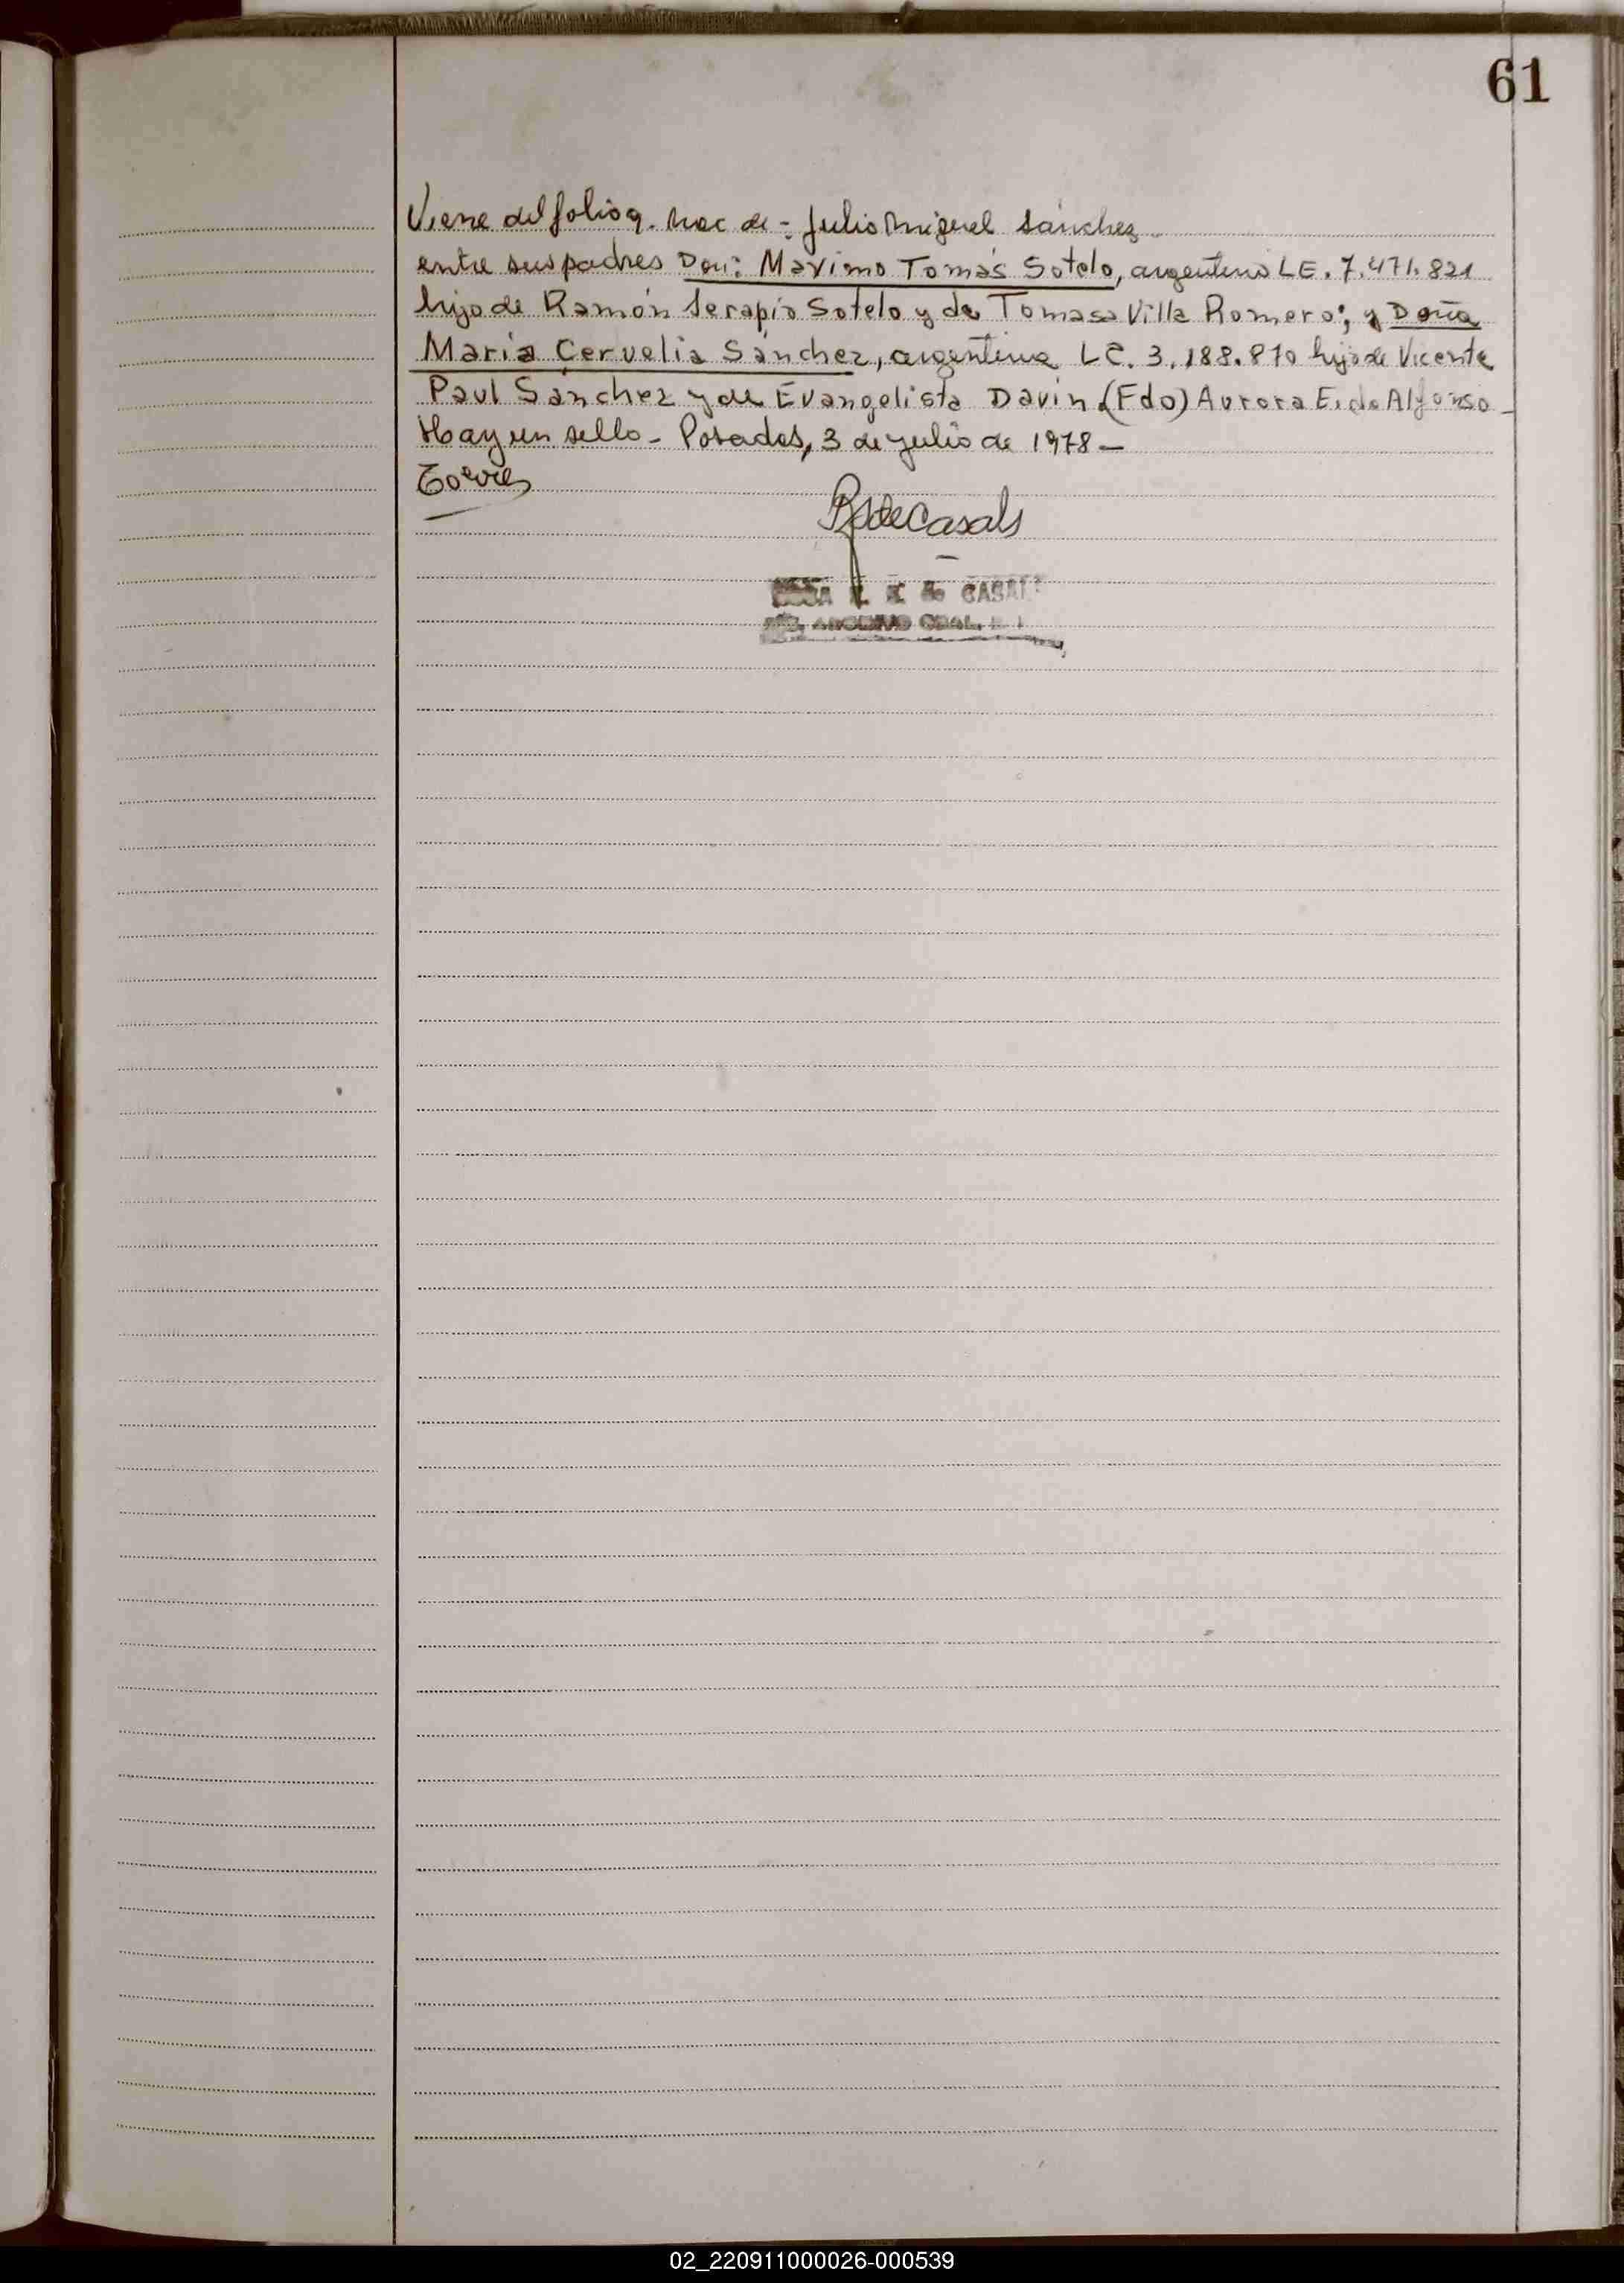 61
Viene del folio 9. Nac de - Julio Miguel Sánchez
entre sus padres Don: Maximo Tomás Sotelo, argentino LE. 7.471.821
hijo de Ramón Serapio Sotelo y de Tomasa Villa Romero; y Doña
María Cervelia Sánchez, argentina LC. 3.188.870 hija de Vicente
Paul Sánchez y de Evangelista Davin (Fdo) Aurora E. de Alfonso -
Hay un sello - Posadas, 3 de julio de 1978 -
Torres
de Casals
CASALS
ARCHIVO GRAL.
02_220911000026-000539